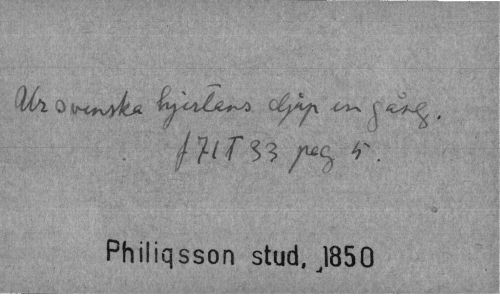 Ur svenska hjertans djup en gång.
f 71 T 33 pag 5.
Philiqsson stud, 1850